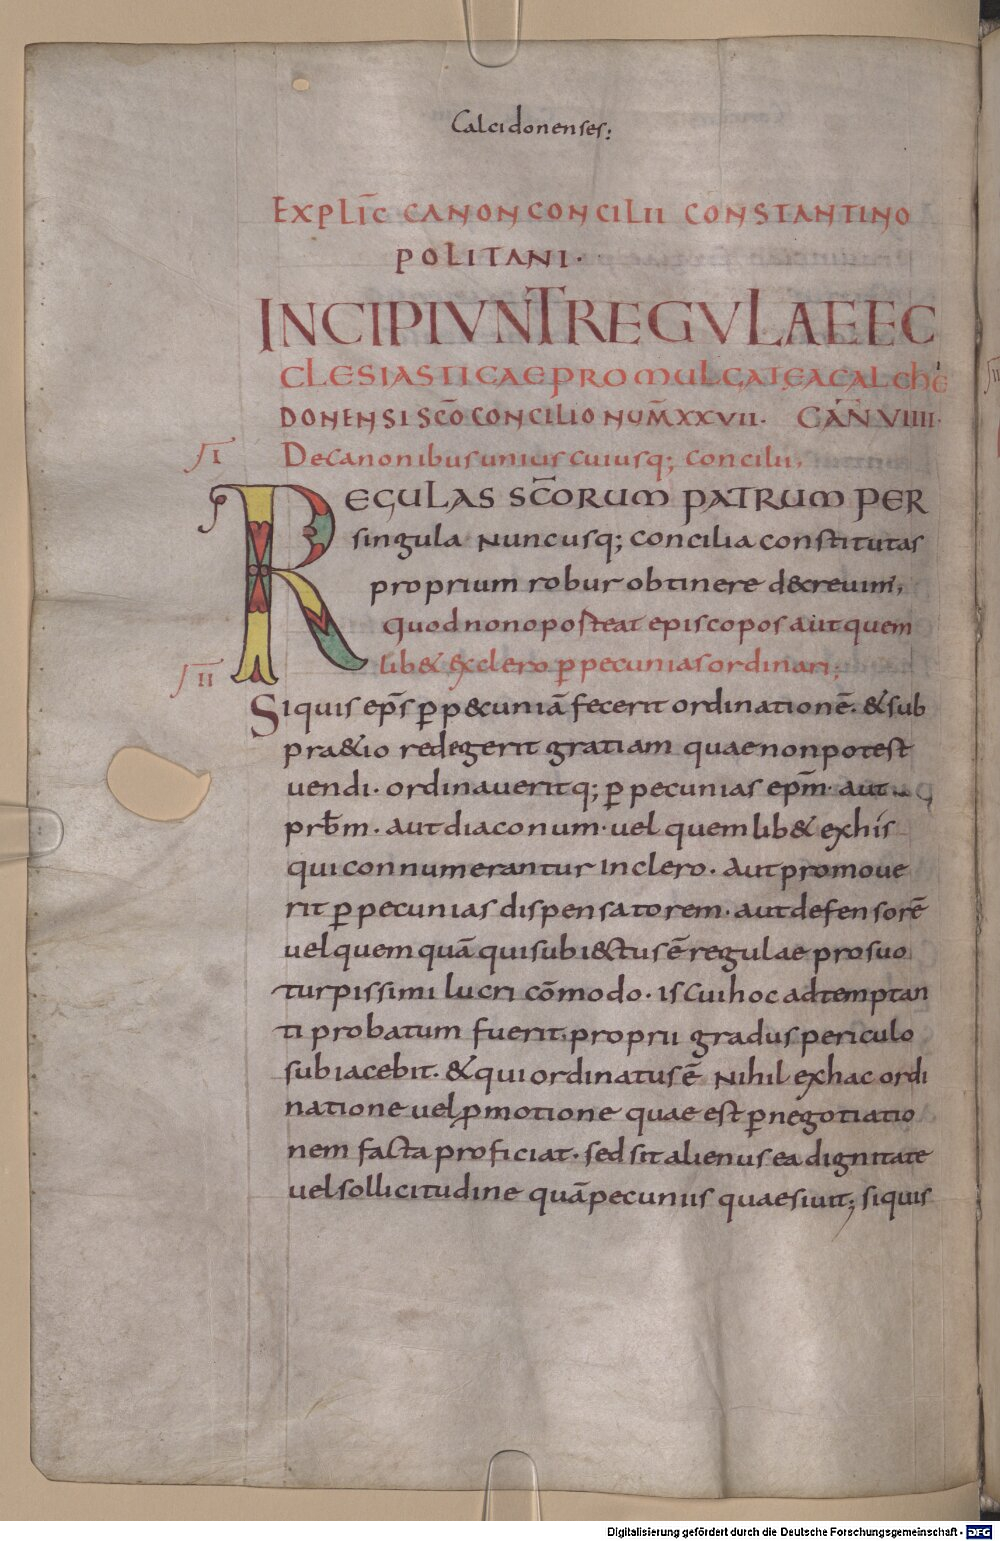 Calcidonenses:
EXPLIC̄ CANON CONCILII CONSTANTINO
POLITANI·
INCIPIUNT REGULAE EC
CLESIASTICAE PROMULGATE A CALCHE
DONENSI SC̄O CONCILIO NUM̄ XXVII· CAN̄ VIIII·
I De canonibus unius cuiusq; concilii.
REGULAS SC̄ORUM PATRUM PER
singula nunc usq; concilia constitutas
proprium robur obtinere decreuim̄,
quod non oposteat episcopos aut quem
II lib& ex clero p̲ pecunias ordinari;
Si quis ep̄s p̲ p&cuniā fecerit ordinationē· & sub
pra&io redegerit gratiam quae non potest
uendi· ordinaueritq; p̲ pecunias ep̄m· aut
prb̄m· aut diaconum· uel quem lib& ex his
qui connumerantur in clero· aut promoue
rit p̲ pecunias dispensatorem· aut defensorē
uel quemquā qui subi&ctus ē regulae pro suo
turpissimi lucri cōmodo· is cui hoc adtemptan
ti probatum fuerit, proprii gradus periculo
subiacebit· & qui ordinatus ē nihil ex hac ordi
natione uel p̱motione quae est p̲ negotiatio
nem facta proficiat· sed sit alienus ea dignitate
uel sollicitudine quā pecuniis quaesiuit; si quis
Digitalisierung gefördert durch die Deutsche Forschungsgemeinschaft - DFG